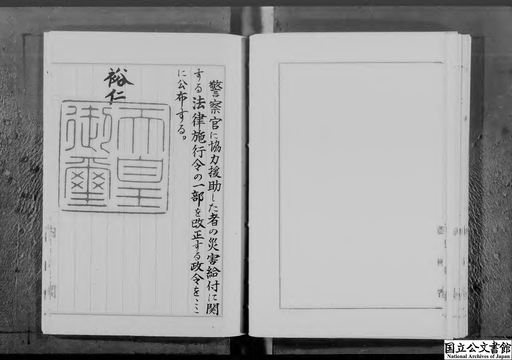 警察官に協力援助した者の災害給付に関
する法律施行令の一部を改正する政令をここ
に公布する。
裕仁
天皇
御璽
国立公文書館
National Archives of Japan